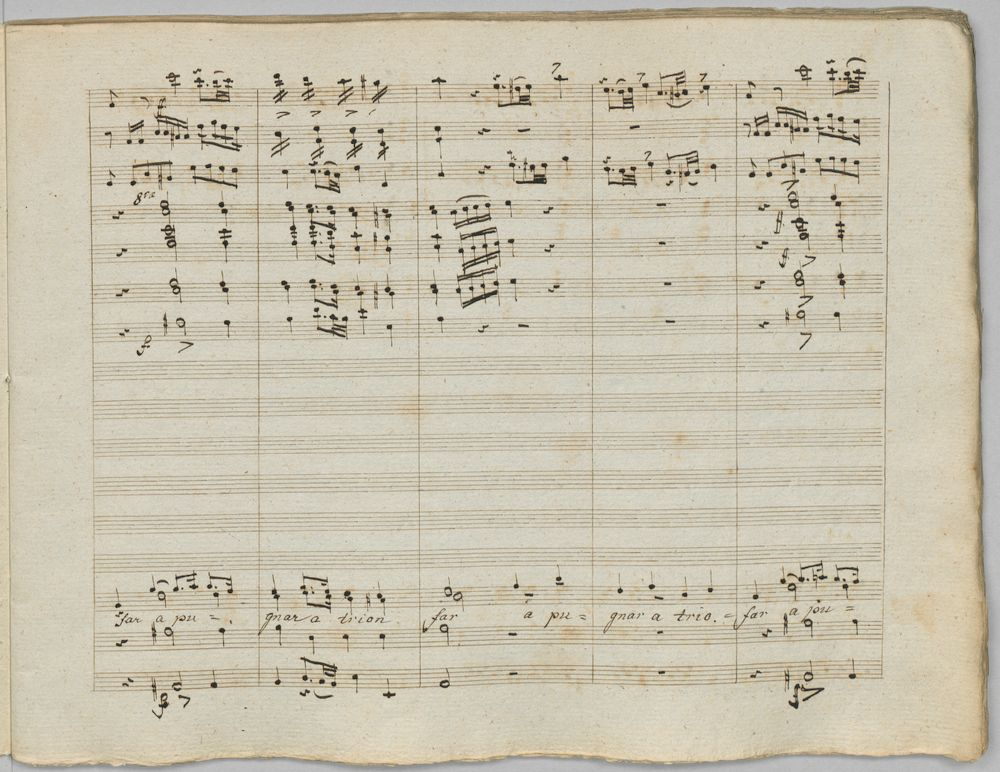 8va
far a pu = gnar a trion far a pu = gnar a trio. = far a pu =